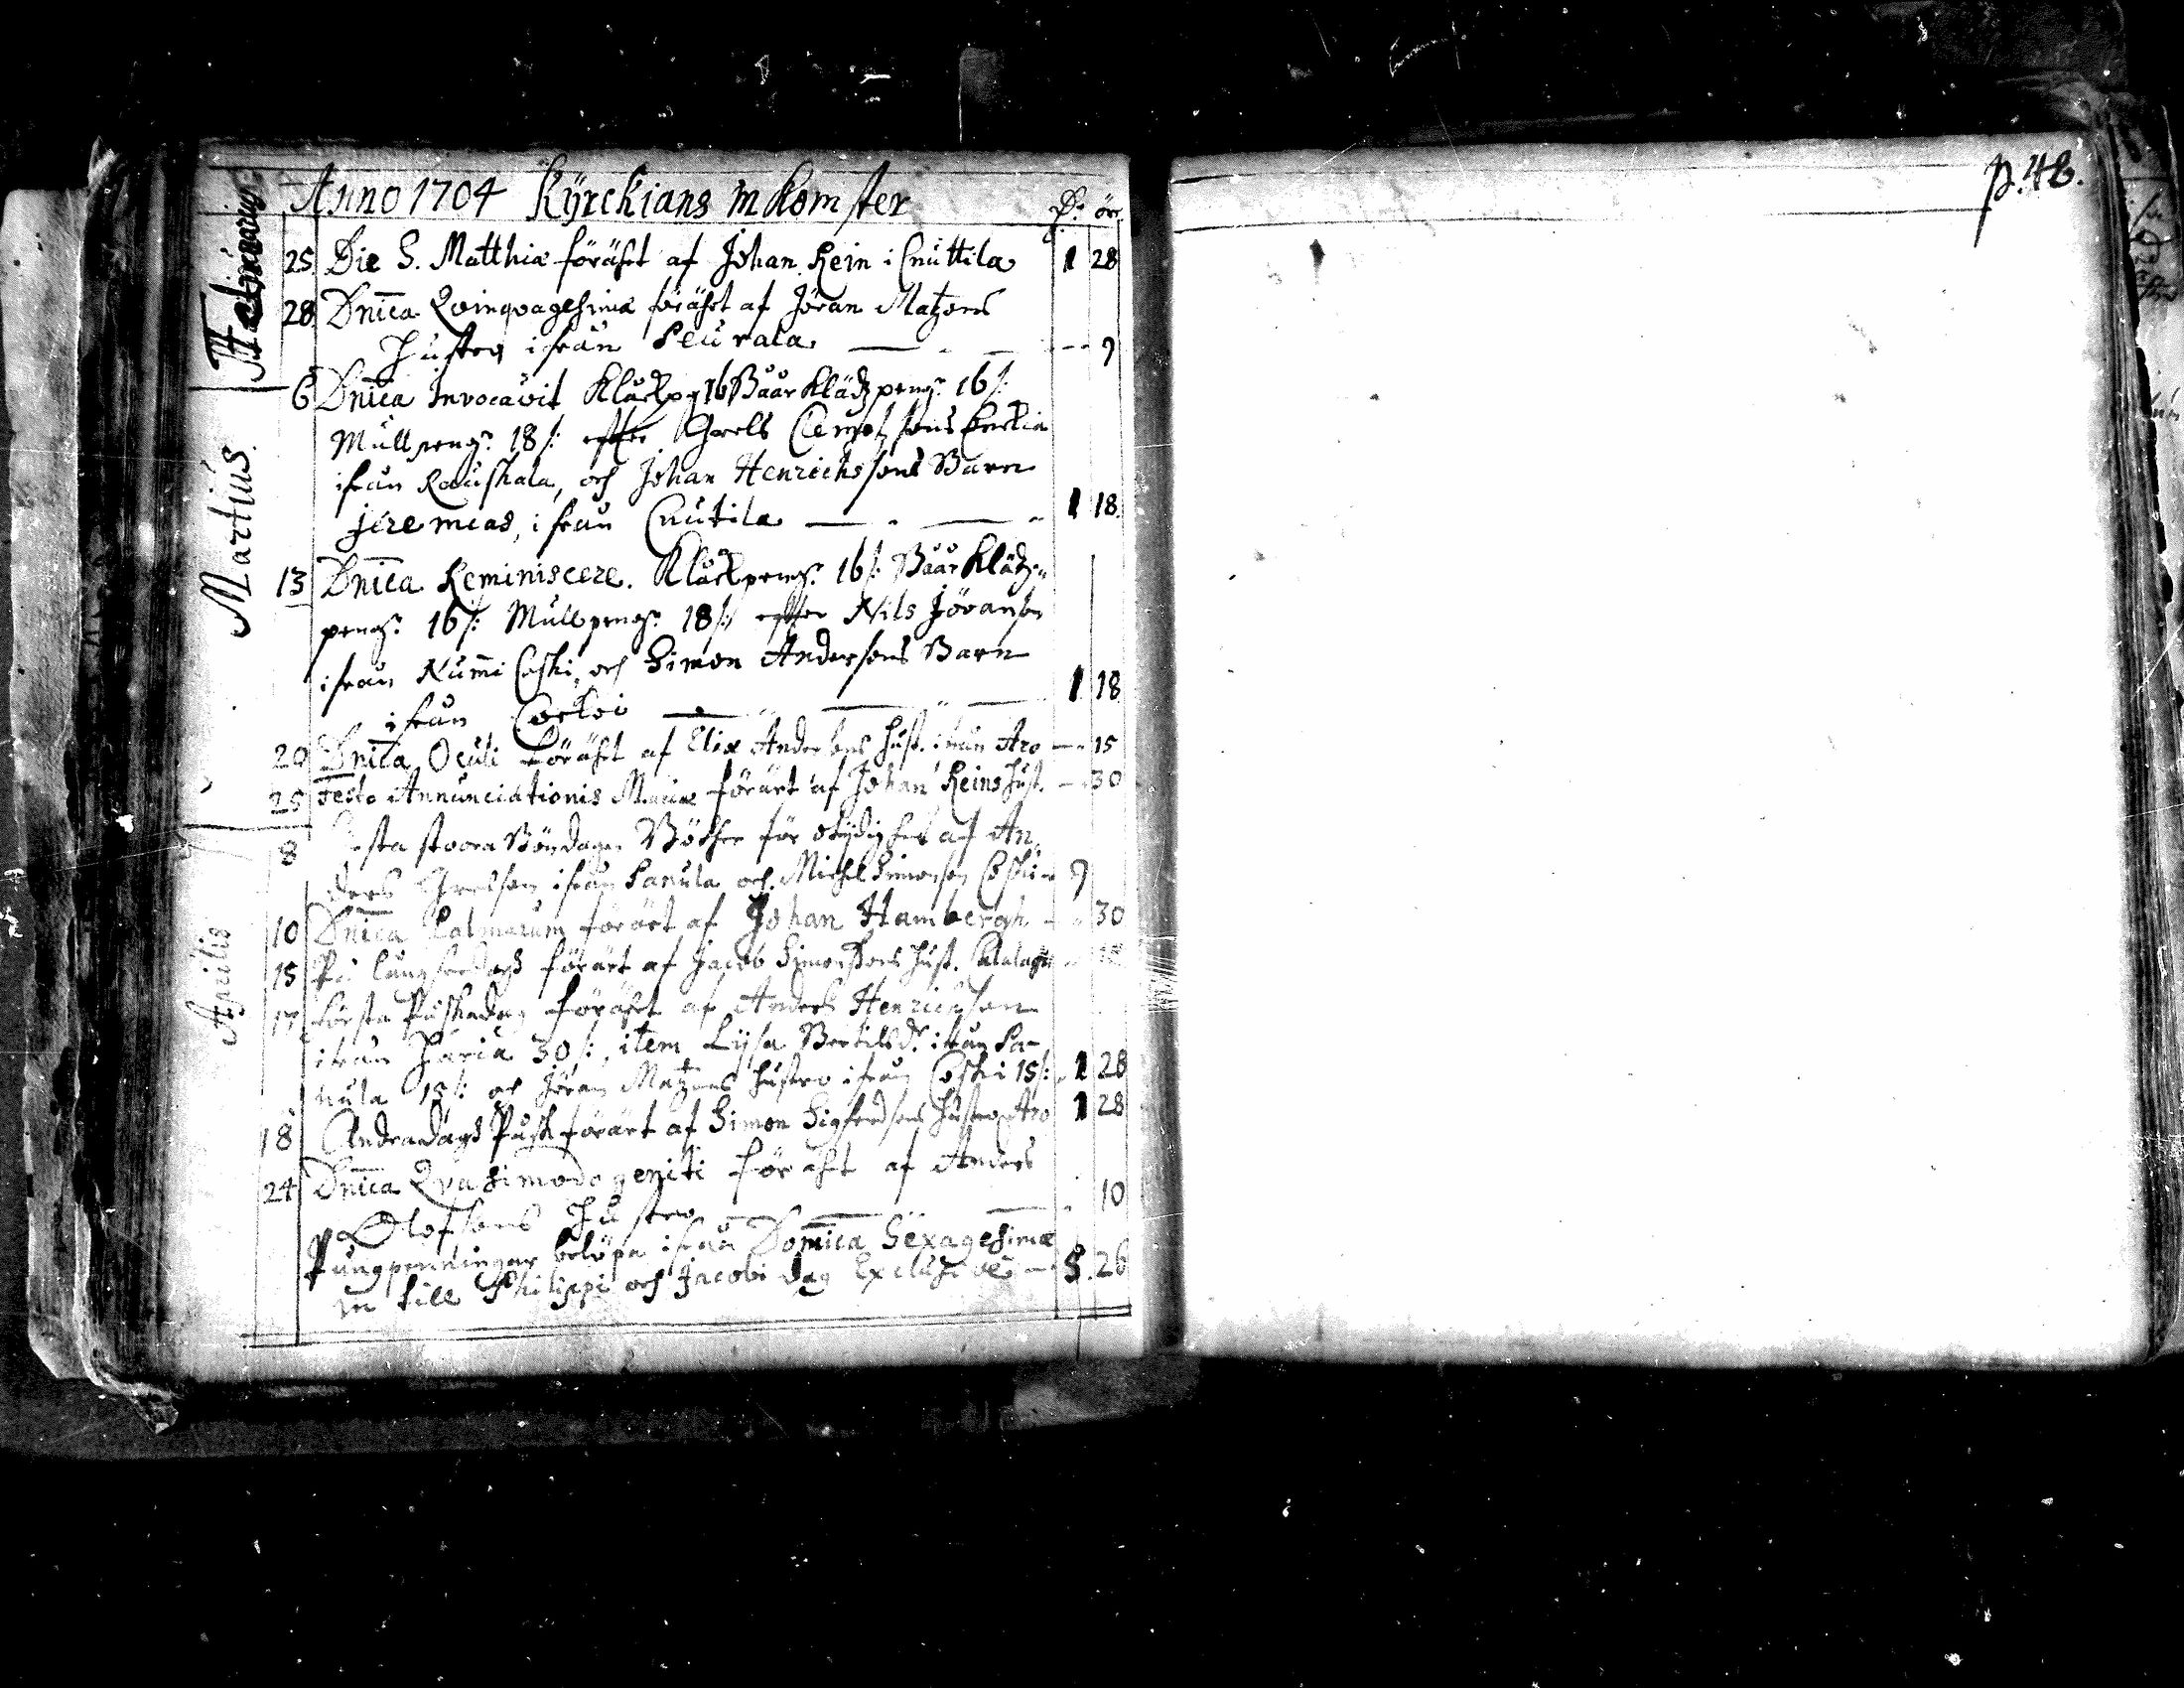 Anno 1704 Kÿrckians inkomster
D:r öre
p. 48.
Februarius
25 Die S. Matthiæ föräht af Johan Rein i Cnuttila 1 28
28 Dnica Qvinqvagesima föräht af Jöran Matzons
hustro ifrån Peurala 9
Martius
6 Dnica Invocavit Klåckpg 16 Båår Klädz peng:r 16/:
Mull peng:r 18/: efter Grels Clemetzsons
ifrån Rauskala, och Johan Henrichssons Barn
Jeremias, ifrån Cnutila 1 18
13 Dnica Reminiscere. Klåckpeng:r 16/: Båår Klädz
peng:r 16/: Mull peng:r 18/: efter Nils Jöranson
ifrån Nummi Coski, och Simon Andersons Barn
ifrån 1 18
20 Dnica Oculi föräht af Elix Andersons hust. ifrån Aro 15
25 Festo Annunciationis Mariæ förärt af Johan Reins hust. 30
Aprilis
8 stoora Böndagen Böther för af An,
ders Grelson ifrån Sanula och Michel Simonson Coski 9
10 Dnica Palmarum förärt af Johan Hambergh 30
15 På långfredags förärt af Jacob Simonssons hust.
17 Första Påskadag föräht af Anders Henrichson
ifrån Haria 30/:, item Lysa Bertilsd:r ifrån Sa-
nula 15/: och Jöran Matzons hustro ifrån Coski 15/: 1 28
18 Andradags Påsk förärt af Simon Sigfredsons hustro Aro 1 28
24 Dnica Qvasimodogeniti föräht af Anders
Olofsons hustro 10
Pungpenningar belöpa ifrån Domica Sexagesimæ
in till Philippi och Jacobi dag Exclusive 8 26